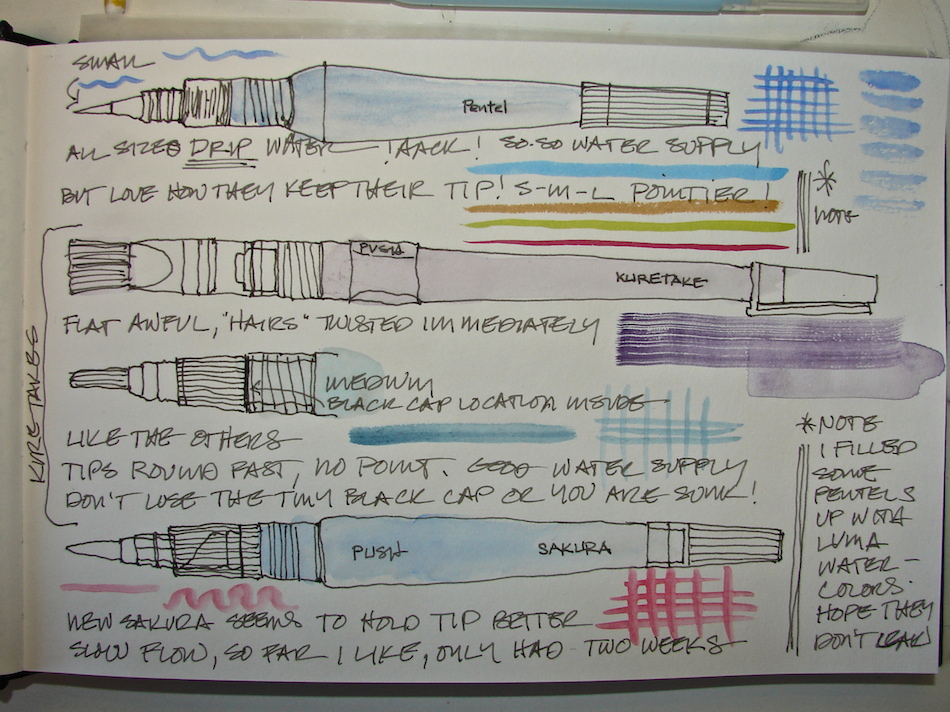 SMALL
Pentel
ALL SIZES DRIP WATER — !AACK! SO-SO WATER SUPPLY
BUT LOVE HOW THEY KEEP THEIR TIP! S-M-L POINTIER!
* NOTE
PUSH
KURETAKE
FLAT AWFUL, "HAIRS" TWISTED IMMEDIATELY
KURETAKES
MEDIUM
BLACK CAP LOCATION INSIDE
LIKE THE OTHERS
TIPS ROUND FAST, NO POINT. GOOD WATER SUPPLY
DON'T LOSE THE TINY BLACK CAP OR YOU ARE SUNK!
PUSH
SAKURA
NEW SAKURA SEEMS TO HOLD TIP BETTER
SLOW FLOW, SO FAR I LIKE, ONLY HAD TWO WEEKS
* NOTE
I FILLED
SOME
PENTELS
UP WITH
LUMA
WATER-
COLORS.
HOPE THEY
DON'T LEAK!